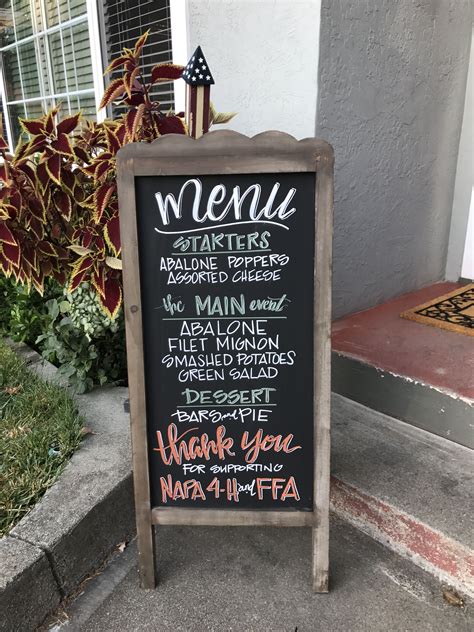 menu
STARTERS
ABALONE POPPERS
ASSORTED CHEESE
the MAIN event
ABALONE
FILET MIGNON
SMASHED POTATOES
GREEN SALAD
DESSERT
BARS and PIE
thank you
FOR SUPPORTING
NAPA 4-H and FFA